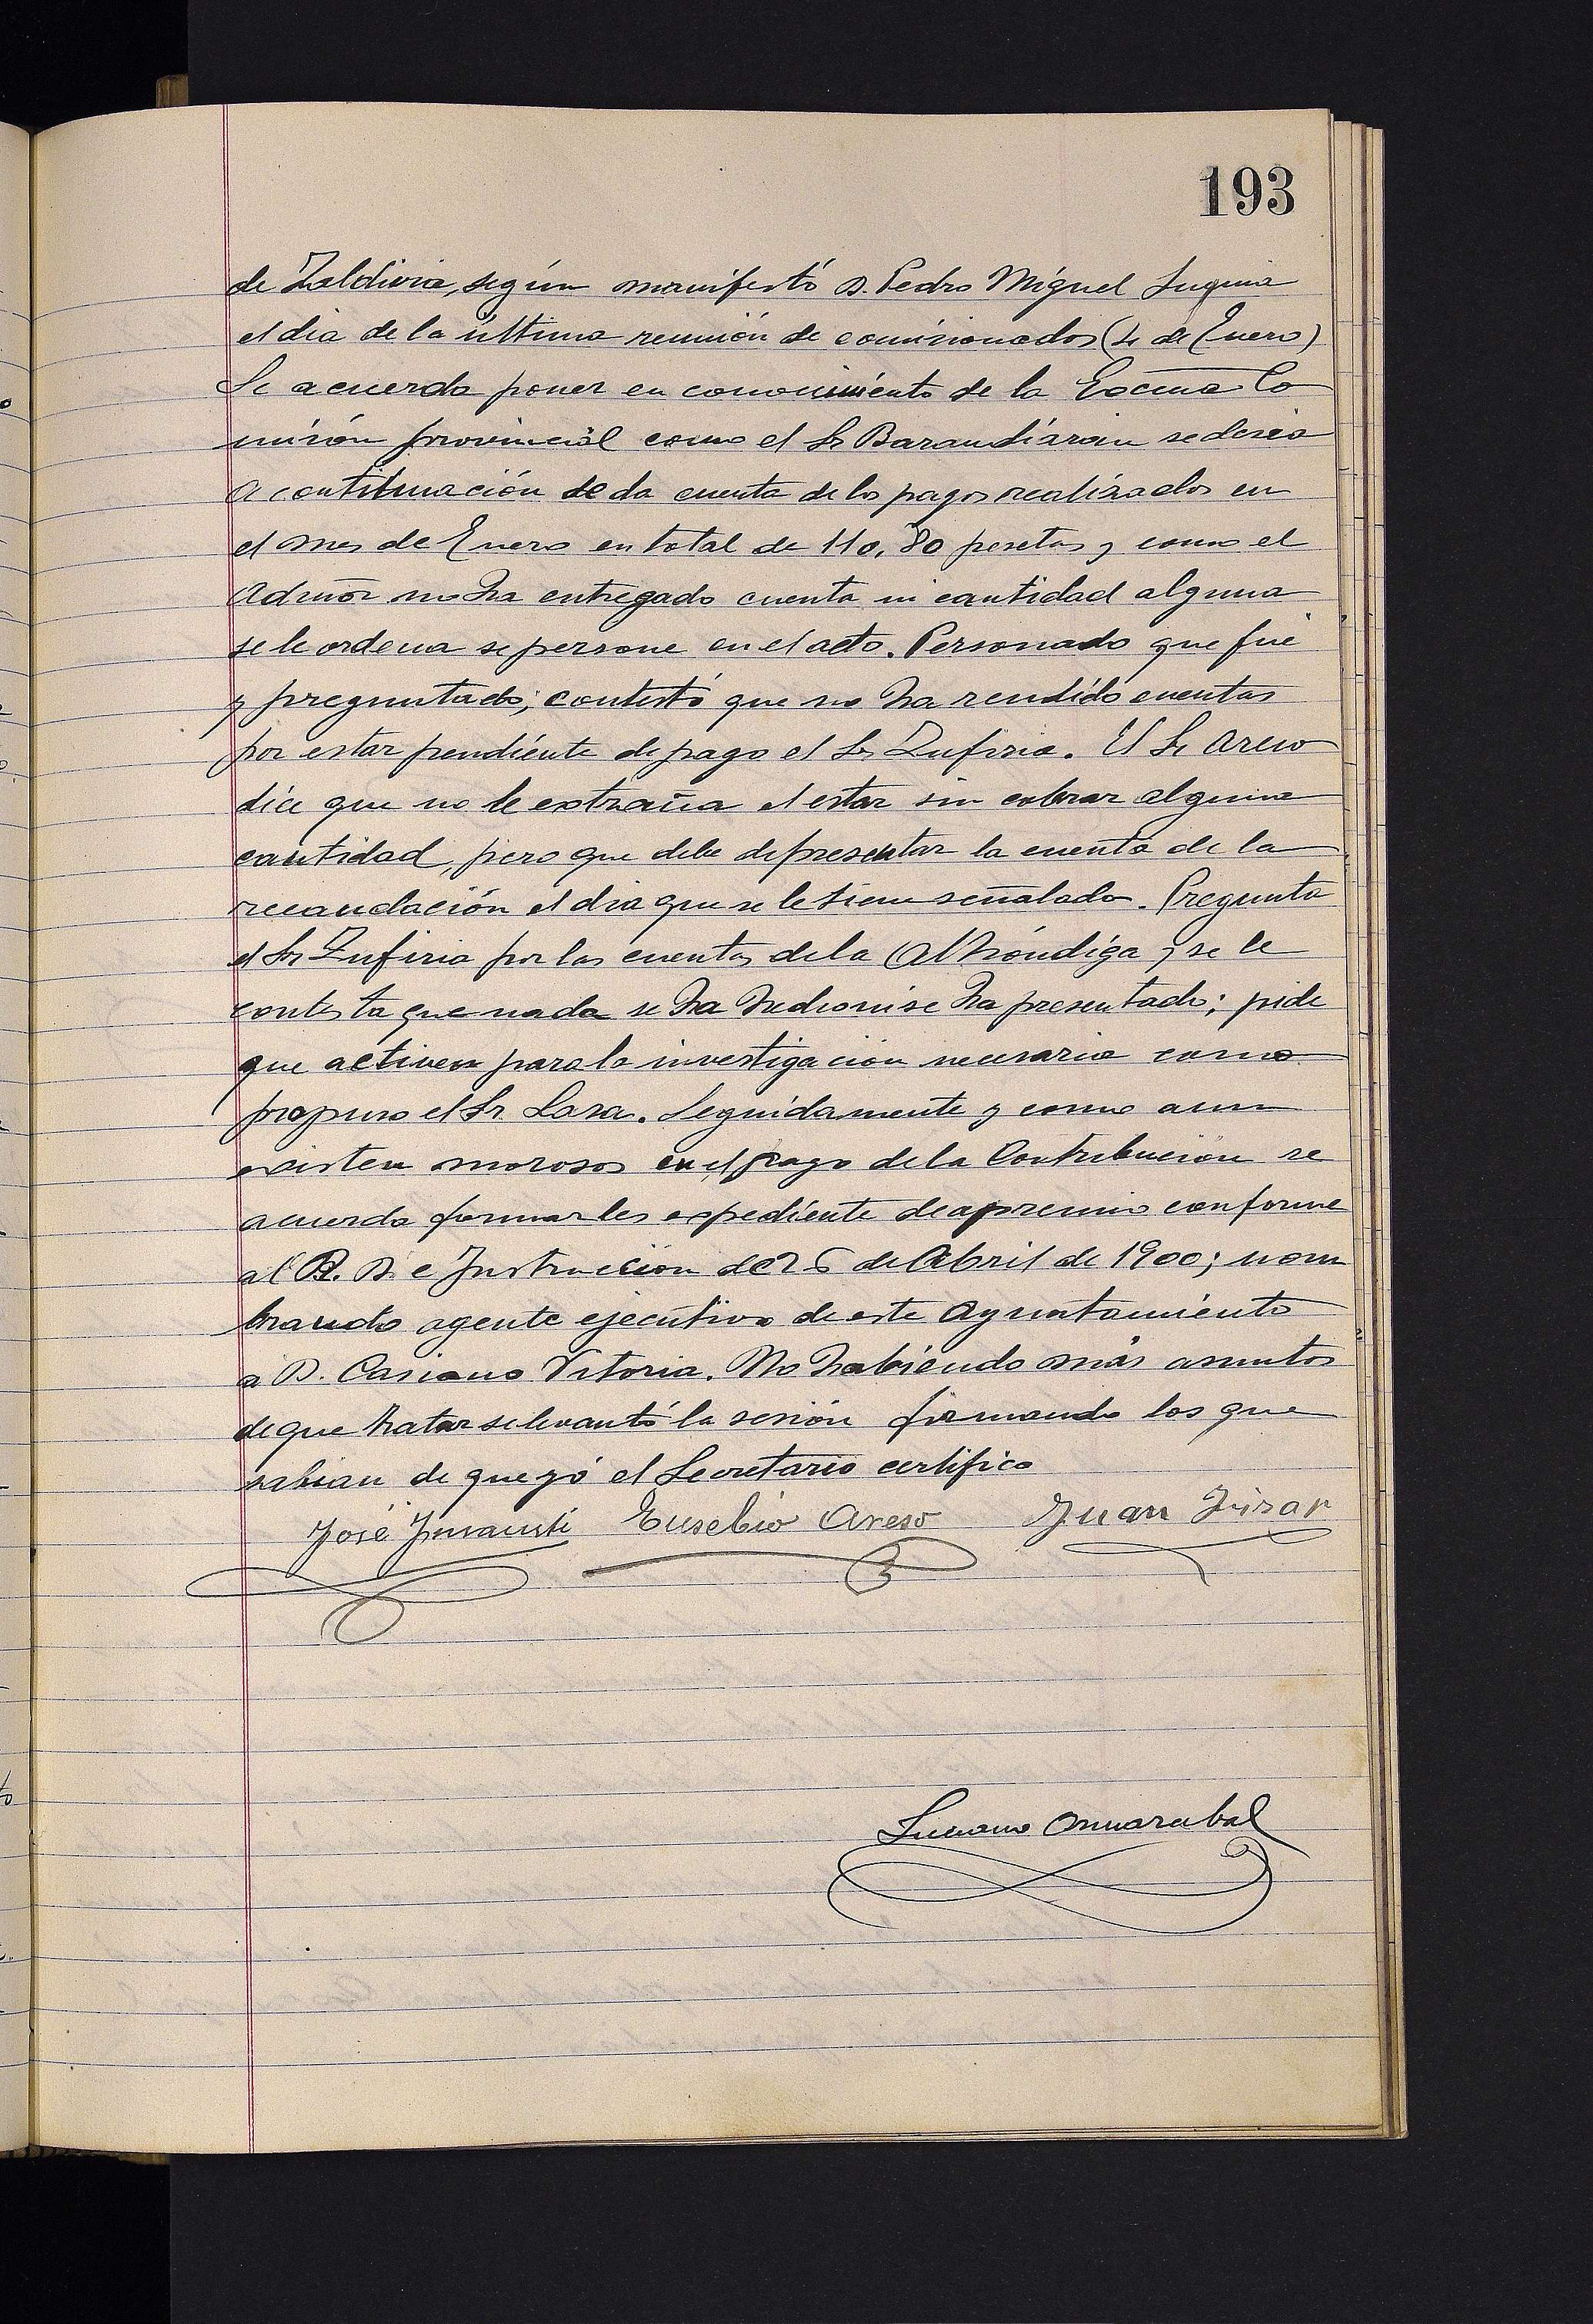 193
de Zaldivia, según manifestó D. Pedro Miguel
el dia de la última reunión de comisionados (4 de Enero)
Se acuerda poner en conocimiento de la Excma Co
misión provincial como el Sr Barandiarán se desea
A continuación se da cuenta de los pagos realizados en
el mes de Enero en total de 110,80 pesetas y como el
Admor no ha entregado cuenta ni cantidad alguna
se le ordena se persone en el acto. Personado que fué
y preguntado; contestó que no ha rendido cuentas
por estar pendiente de pago el Sr Zufiria. El Sr Areso
dice que no le extraña el estar sin cobrar alguna
cantidad, pero que debe de presentar la cuenta de la
recaudación el dia que se le tiene señalado. Pregunta
el Sr Zufiria por las cuentas de la Alhóndiga y se le
contesta que nada se ha hecho ni se ha presentado; pide
que activen para la investigación necesaria como
propuso el Sr. Lasa. Seguidamente y como aun
existen morosos en el pago de la Contribución se
acuerda formarles expediente de apremio conforme
al R. D. e Instrucción de 26 de Abril de 1900; nom
brando agente ejecutivo de este Ayuntamiento
a D. Casiano Vitoria. No habiendo más asuntos
de que tratar se levantó la sesión firmando los que
sabian de que yó el Secretario certifico
José Insausti Eusebio Areso Juan
Luciano Ormazabal